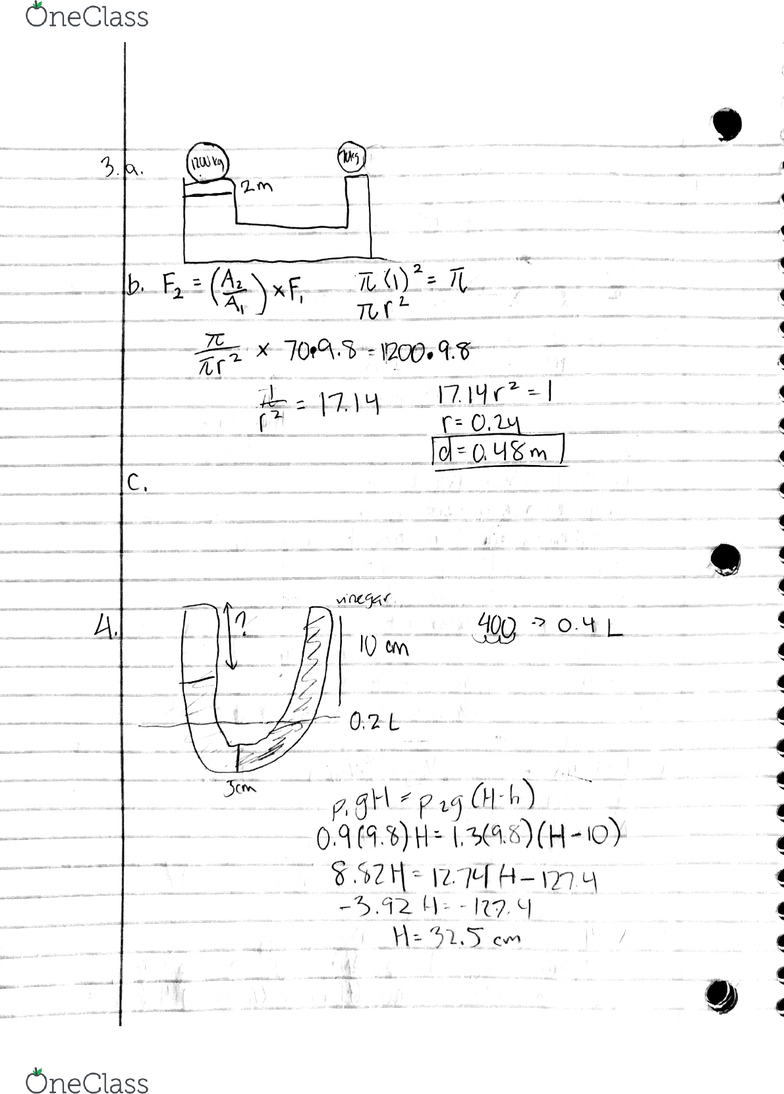 OneClass
3. a.
1200 kg
70kg
2m
b. F₂ = (A₂/A₁) × F₁   π(1)² = π
πr²
π/πr² × 70•9.8 = 1200•9.8
1/r² = 17.14   17.14r² = 1
r = 0.24
d = 0.48m
C.
4.
?
vinegar
10 cm
400 → 0.4 L
0.2 L
3cm
p₁gH = p₂g(H-h)
0.9(9.8)H = 1.3(9.8)(H-10)
8.82H = 12.74H - 127.4
-3.92H = -127.4
H = 32.5 cm
OneClass